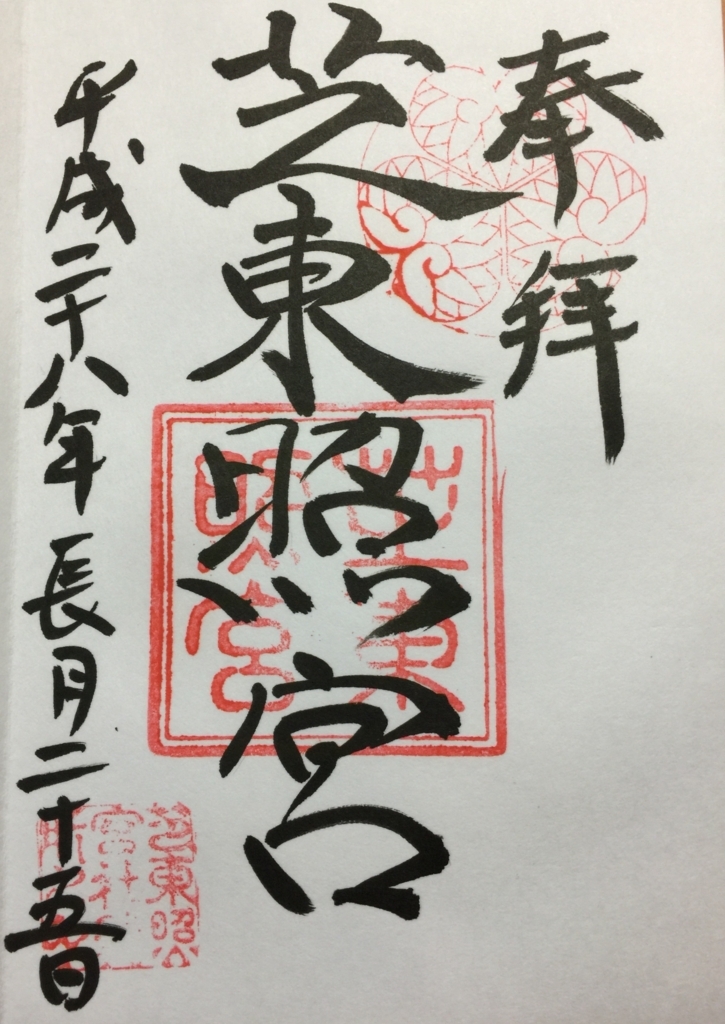 奉拝
芝東照宮
平成二十八年長月二十五日
芝東照宮
芝東照